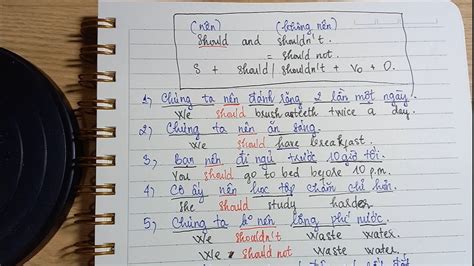 (nên) (không nên)
Should and shouldn't.
= should not.
S + should / shouldn't + V₀ + O.
1) Chúng ta nên đánh răng 2 lần một ngày.
We should brush teeth twice a day.
2) Chúng ta nên ăn sáng.
We should have breakfast.
3) Bạn nên đi ngủ trước 10 giờ tối.
You should go to bed before 10 p.m.
4) Cô ấy nên học tập chăm chỉ hơn.
She should study harder.
5) Chúng ta nên lãng phí nước.
We shouldn't waste water.
We should not waste water.